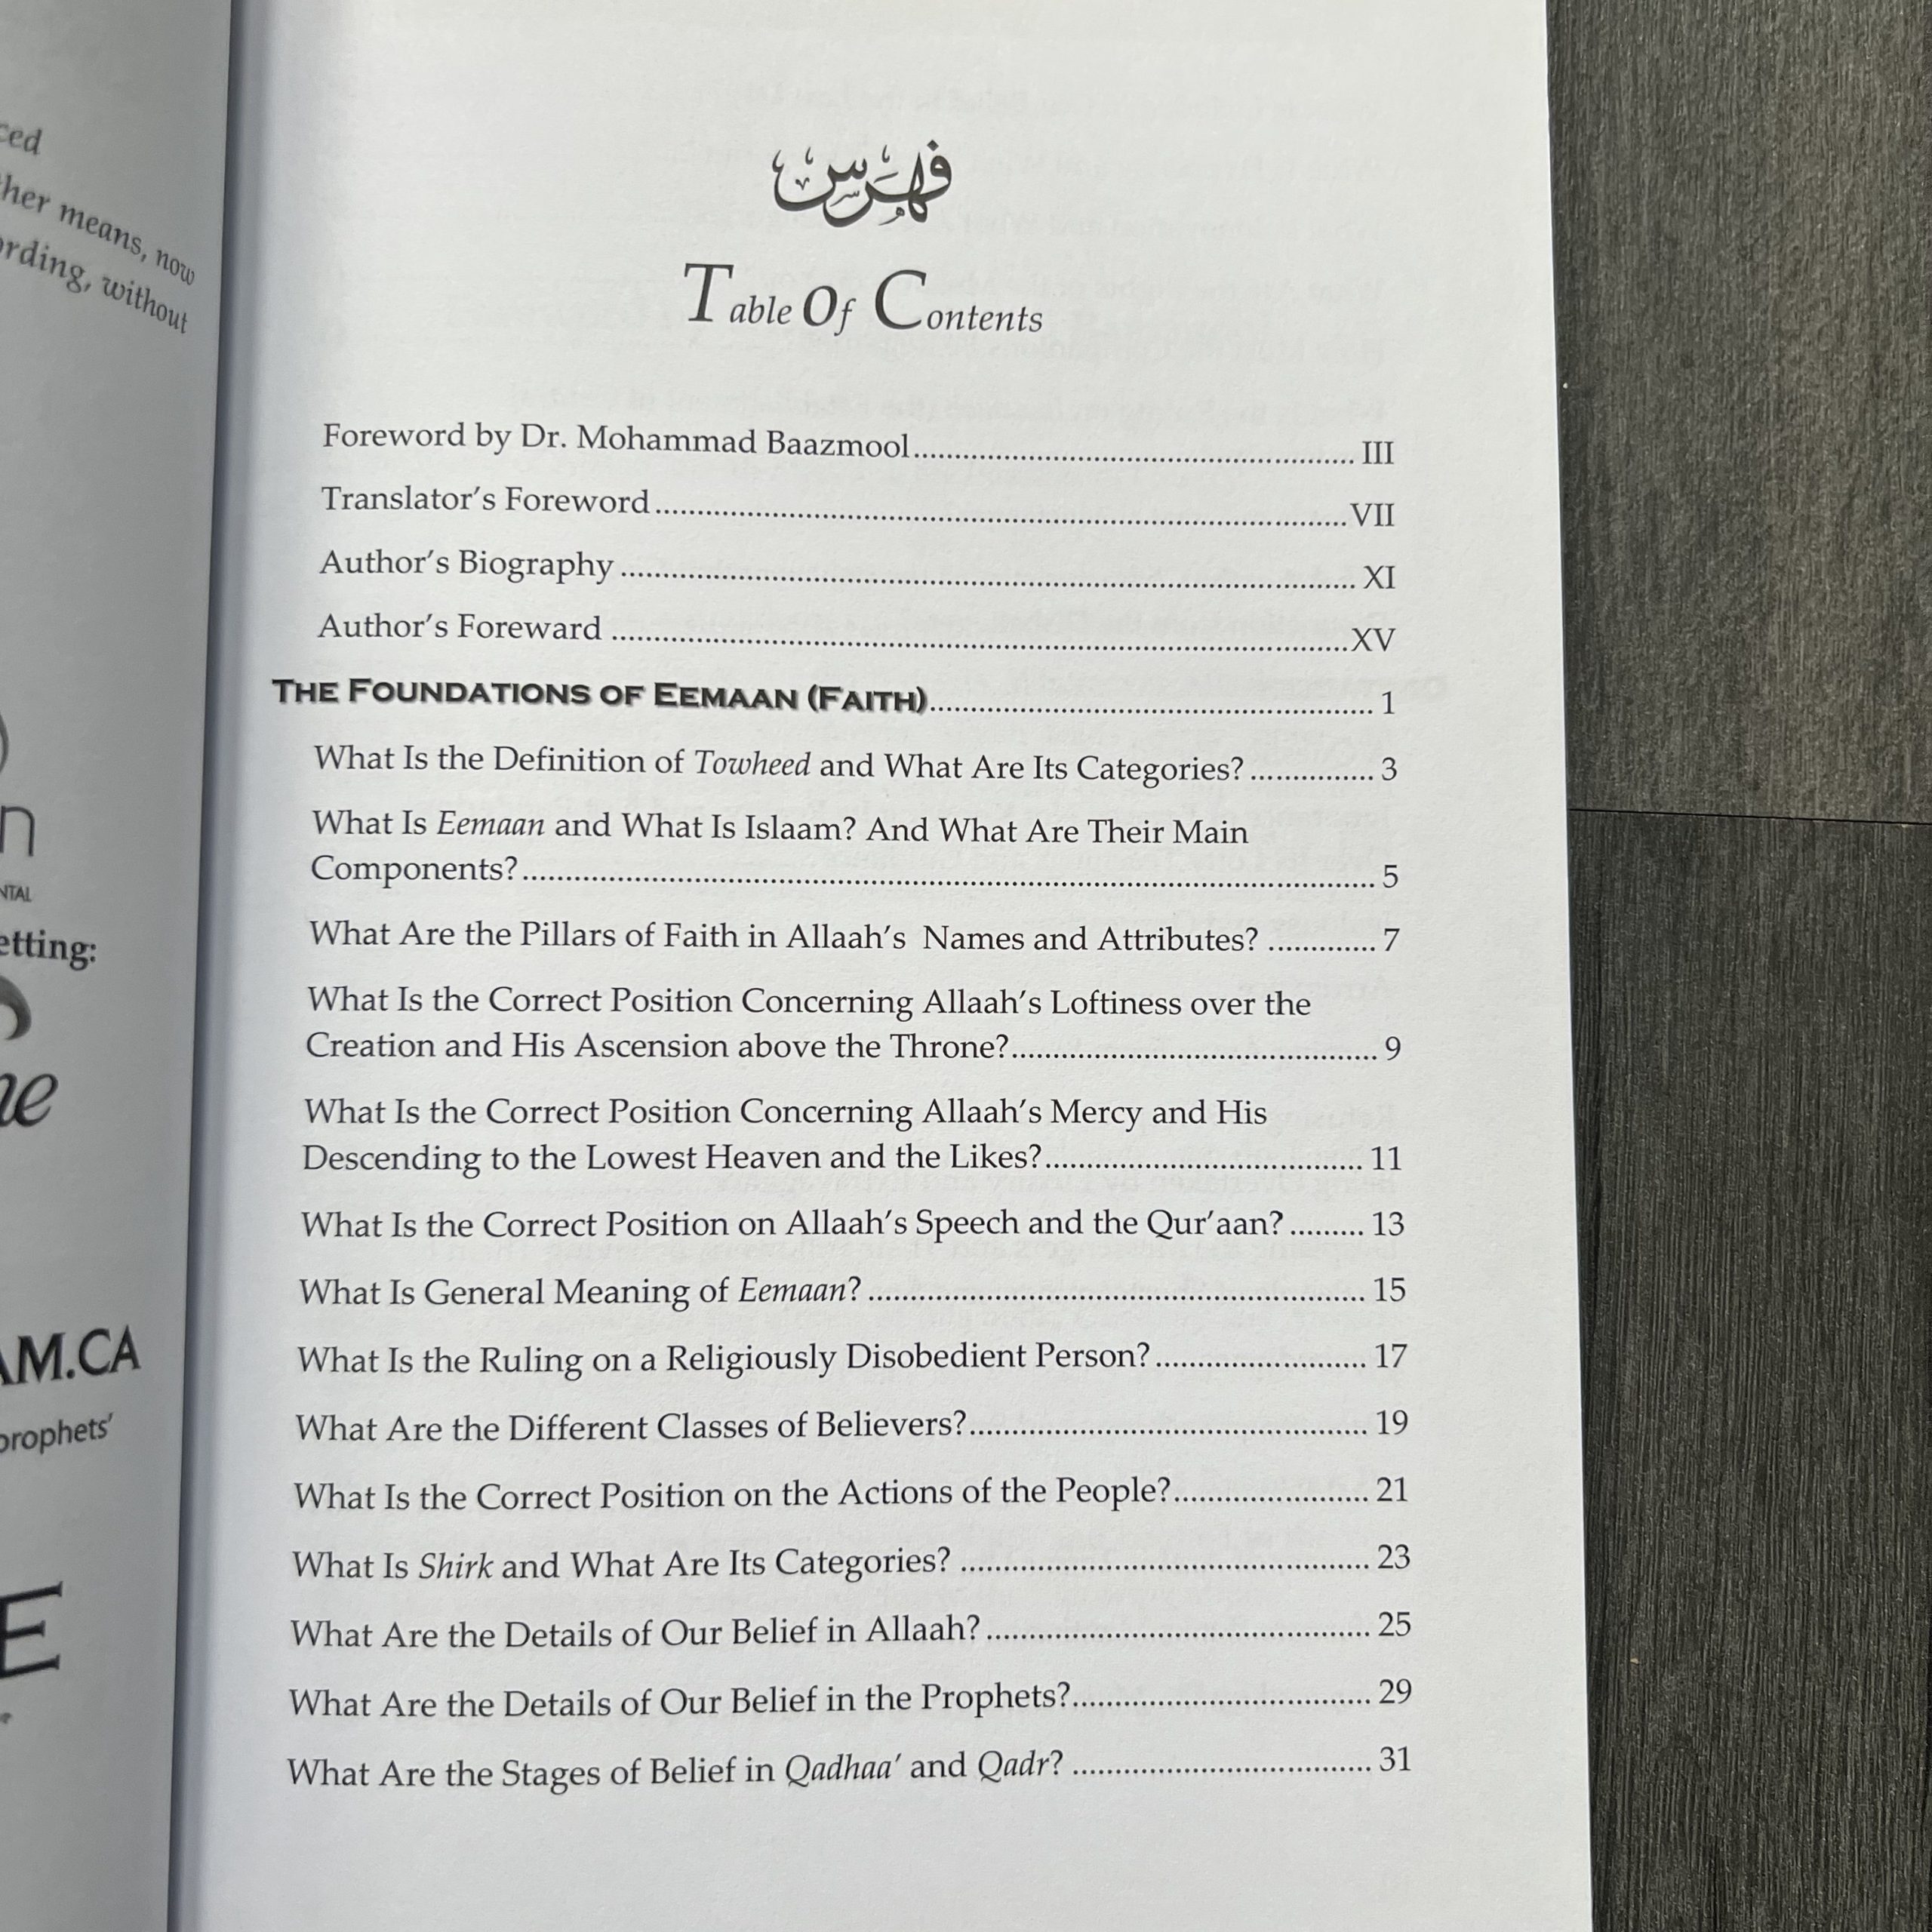 her means, now
ording, without
etting:
AM.CA
prophets'
فهرس
Table Of Contents
Foreword by Dr. Mohammad Baazmool.......... III
Translator's Foreword.......... VII
Author's Biography .......... XI
Author's Foreward .......... XV
THE FOUNDATIONS OF EEMAAN (FAITH).......... 1
What Is the Definition of Towheed and What Are Its Categories? .......... 3
What Is Eemaan and What Is Islaam? And What Are Their Main
Components?.......... 5
What Are the Pillars of Faith in Allaah's Names and Attributes? .......... 7
What Is the Correct Position Concerning Allaah's Loftiness over the
Creation and His Ascension above the Throne?.......... 9
What Is the Correct Position Concerning Allaah's Mercy and His
Descending to the Lowest Heaven and the Likes?.......... 11
What Is the Correct Position on Allaah's Speech and the Qur'aan? ......... 13
What Is General Meaning of Eemaan? .......... 15
What Is the Ruling on a Religiously Disobedient Person?.......... 17
What Are the Different Classes of Believers?.......... 19
What Is the Correct Position on the Actions of the People?.......... 21
What Is Shirk and What Are Its Categories? .......... 23
What Are the Details of Our Belief in Allaah? .......... 25
What Are the Details of Our Belief in the Prophets?.......... 29
What Are the Stages of Belief in Qadhaa' and Qadr? .......... 31